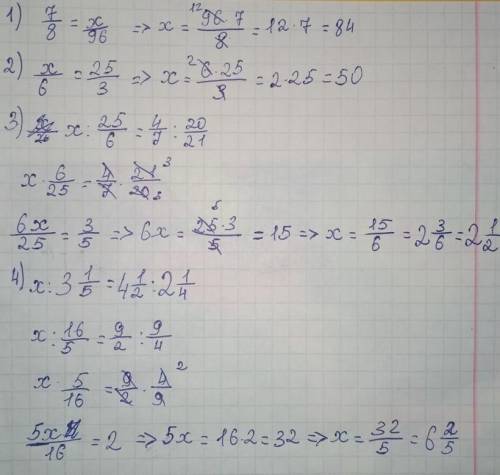 1) 7/8 = x/96 => x = 96·7/8 = 12·7 = 84
2) x/6 = 25/3 => x = 6·25/3 = 2·25 = 50
3) x : 25/6 = 4/7 : 20/21
x · 6/25 = 4/7 · 21/20
6x/25 = 3/5 => 6x = 25·3/5 = 15 => x = 15/6 = 2 3/6 = 2 1/2
4) x : 3 1/5 = 4 1/2 : 2 1/4
x : 16/5 = 9/2 : 9/4
x · 5/16 = 9/2 · 4/9
5x/16 = 2 => 5x = 16·2 = 32 => x = 32/5 = 6 2/5